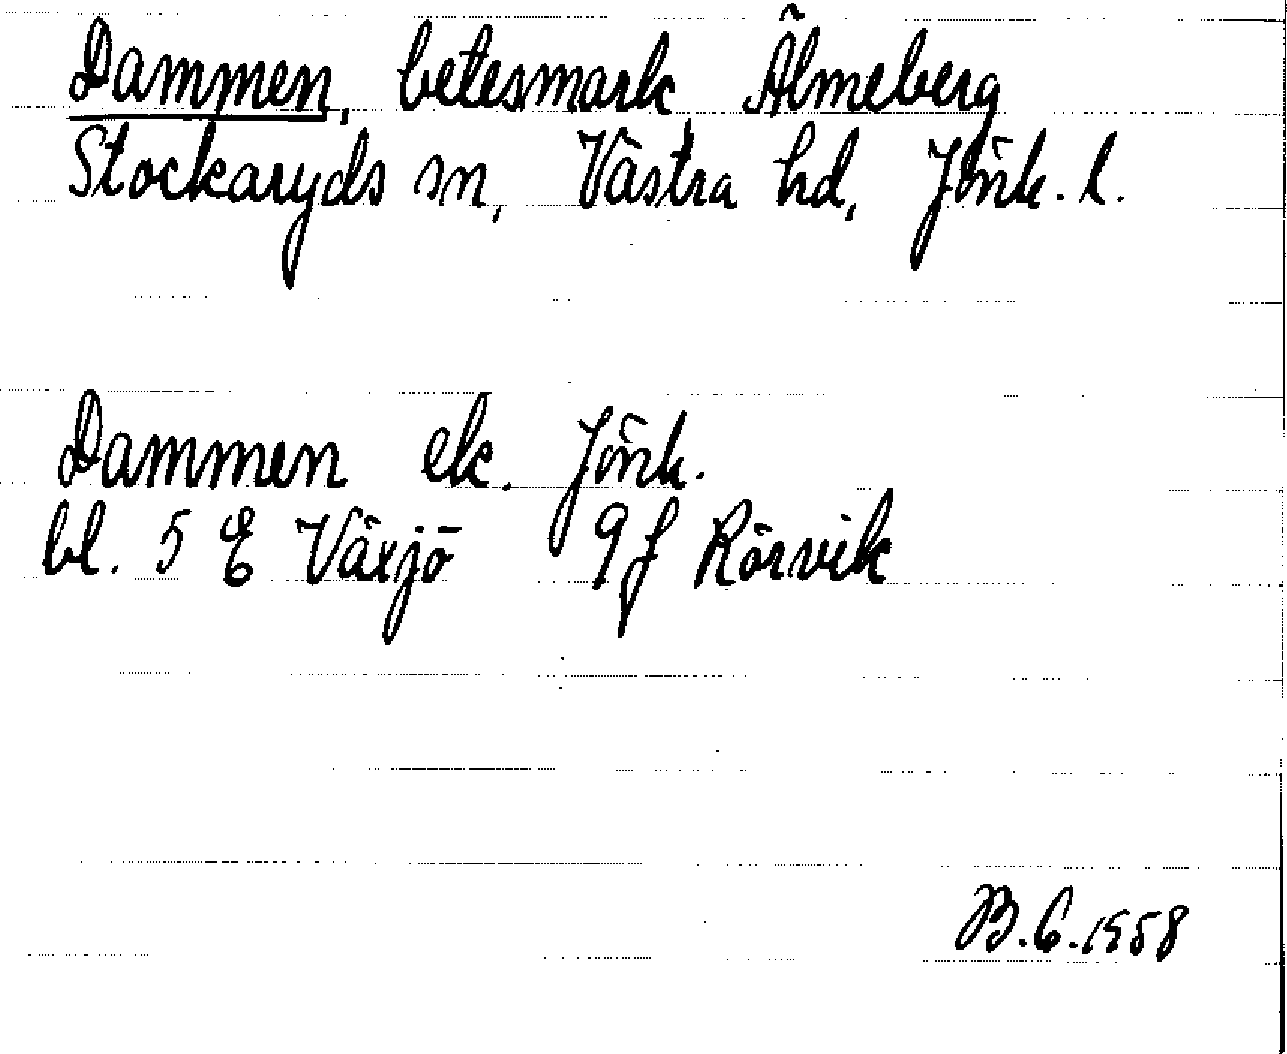 Dammen, betesmark Älmeberg
Stockaryds sn, Västra hd, Jönk. l.
Dammen ek. Jönk.
bl. 5 E Växjö 9f Rörvik
B.G.1958